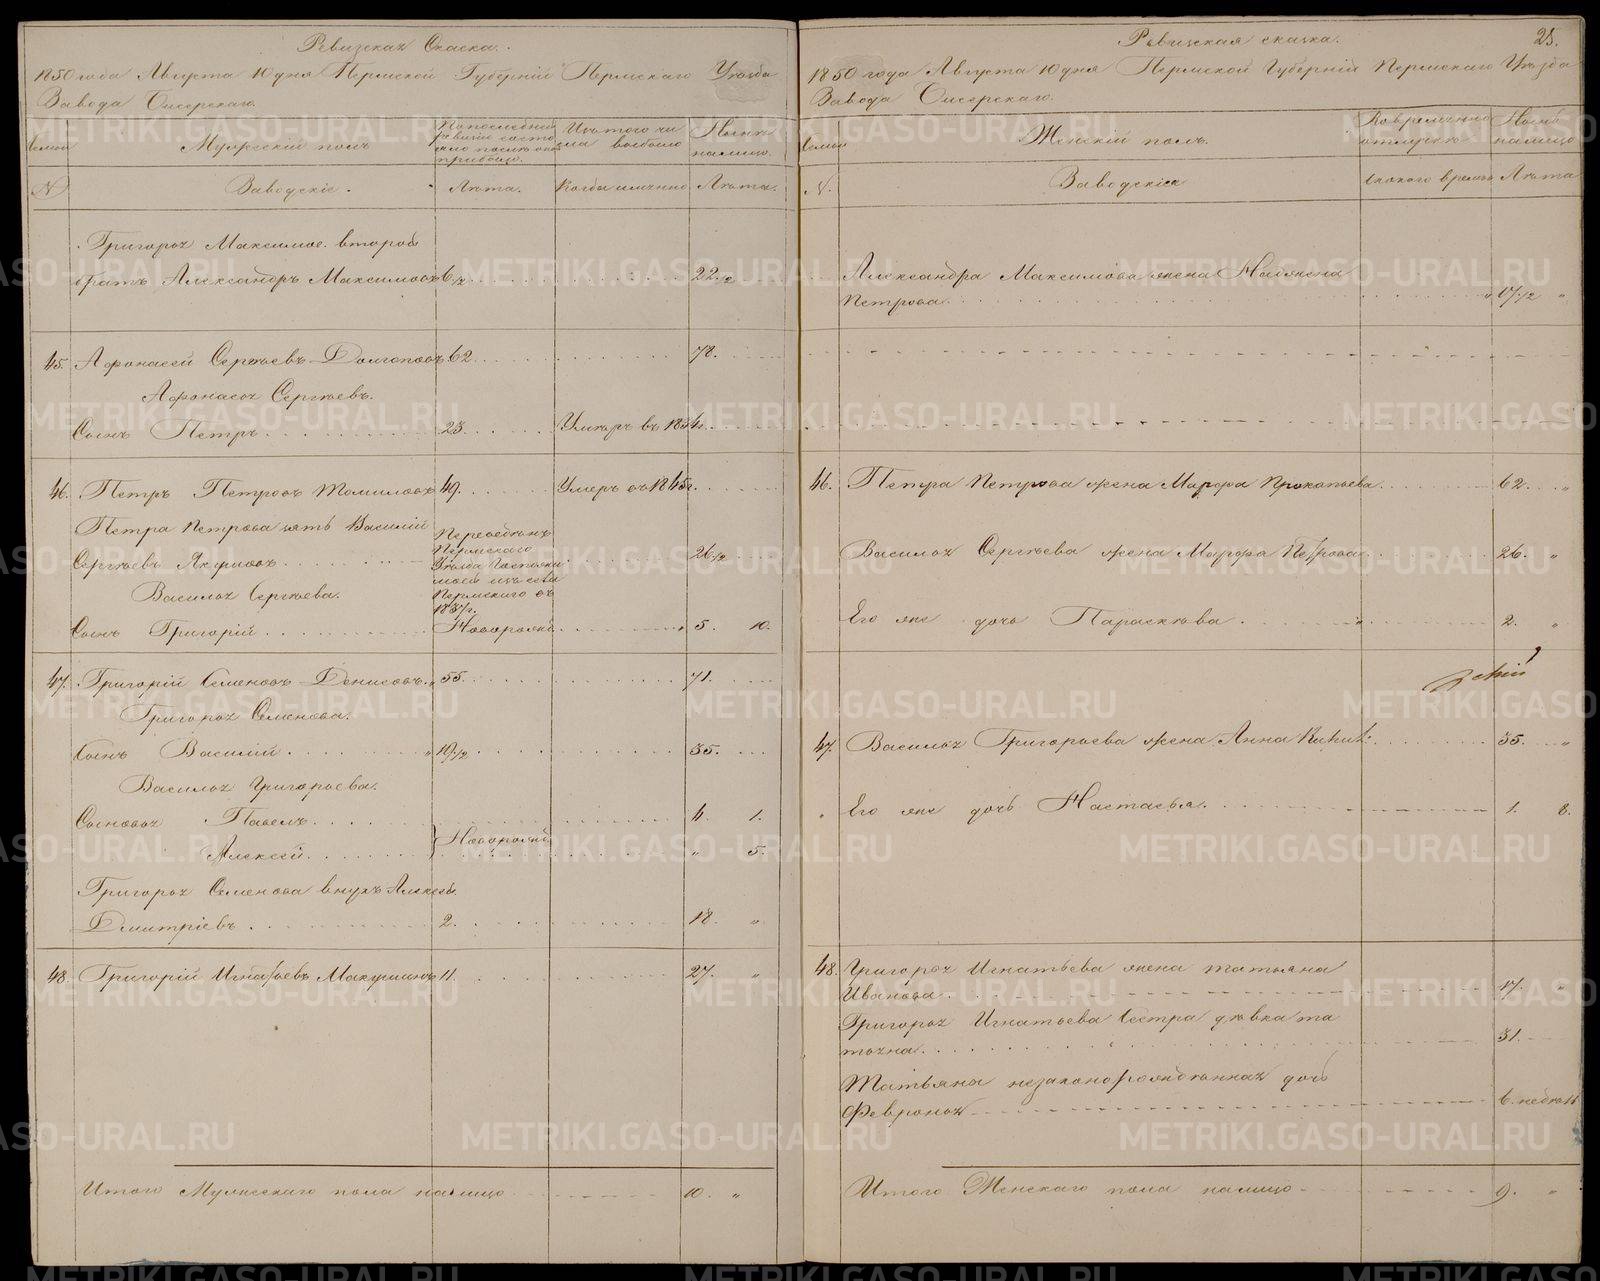 Ревизская Сказка.
1850 года Августа 10 дня Пермской Губерніи Пермскаго Уѣзда
Завода Бисерскаго.
Мужескій полъ
По последней ревизіи состояло и после оной прибыло.
Изъ того числа выбыло
Нынѣ на лицо.
№
Заводскіе.
Лѣта.
Когда именно
Лѣта.
Григорья Максимов. второй
братъ Александръ Максимовъ 6 1/2 22 1/2
45. Афонасей Сергѣевъ Долгоповъ 62 78.
Афонасья Сергѣевъ.
Сынъ Петръ 23 Умеръ въ 1834г.
46. Петръ Петровъ Томиловъ 49. Умеръ въ 1845г.
Петра Петрова зять Василій
Сергѣевъ Якушовъ 26 1/2
Переведенъ
Пермскаго
Уѣзда
Пермскаго въ
Василья Сергѣева.
Сынъ Григорій Новорожд. 5. 10.
47. Григорій Семеновъ Денисовъ 55. 71.
Григорья Семенова.
Сынъ Василій 19 1/2 35.
Василья Григорьева.
Сыновья Павелъ 4. 1.
Новорожд.
Алексей " 5.
Григорья Семенова внукъ Алексей
Дмитріевъ 2. 18. "
48. Григорій Игнатьевъ Макушинъ 11. 27. "
Итого Мужескаго пола на лицо 10. "
Ревизская сказка. 25.
1850 года Августа 10 дня Пермской Губерніи Пермскаго Уѣзда
Завода Бисерскаго.
Женскій полъ.
Во временной отлучкѣ
Нынѣ на лицо
№.
Заводскіе
съ какого времени
Лѣта
Александра Максимова жена Надежда
Петрова " 17 1/2 "
46. Петра Петрова жена Марфа Прокопьева 62. "
Василья Сергѣева жена Марфа Петрова 26. "
Его же дочь Параскева " 2. "
47. Василья Григорьева жена Анна 35. "
" Его же дочь Настасья 1. 8.
48. Григорья Игнатьева жена Татьяна
Иванова 17. "
Григорья Игнатьева Сестра дѣвка Та
тьяна 31.
Татьяны незаконорожденная дочь
Февронья 6. недель
Итого Женскаго пола на лицо 9. "
METRIKI.GASO-URAL.RU